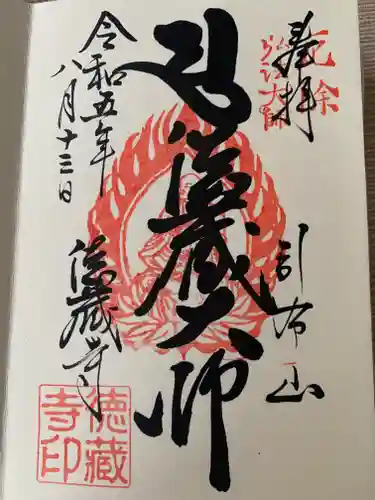 奉拝
厄除
大師
引布山
徳蔵大師
令和五年
八月十三日
徳蔵寺
徳藏寺印